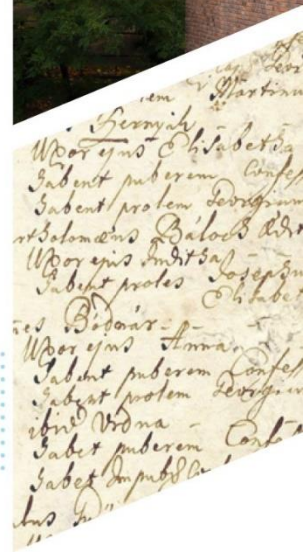 Georg
Martinu
Hernyák
Uxor ejus Elisabetha
Habent puberem Confes
Habent prolem Georgium
rtholomæus Baloch Ædit
Uxor ejus Juditha
Habent proles Josephu
Elisabet
nes Bodnár
Uxor ejus Anna
Habent puberem Confess
Habent prolem Georgiu
ibid Vrana
Habet puberem Confe
Habet Impub